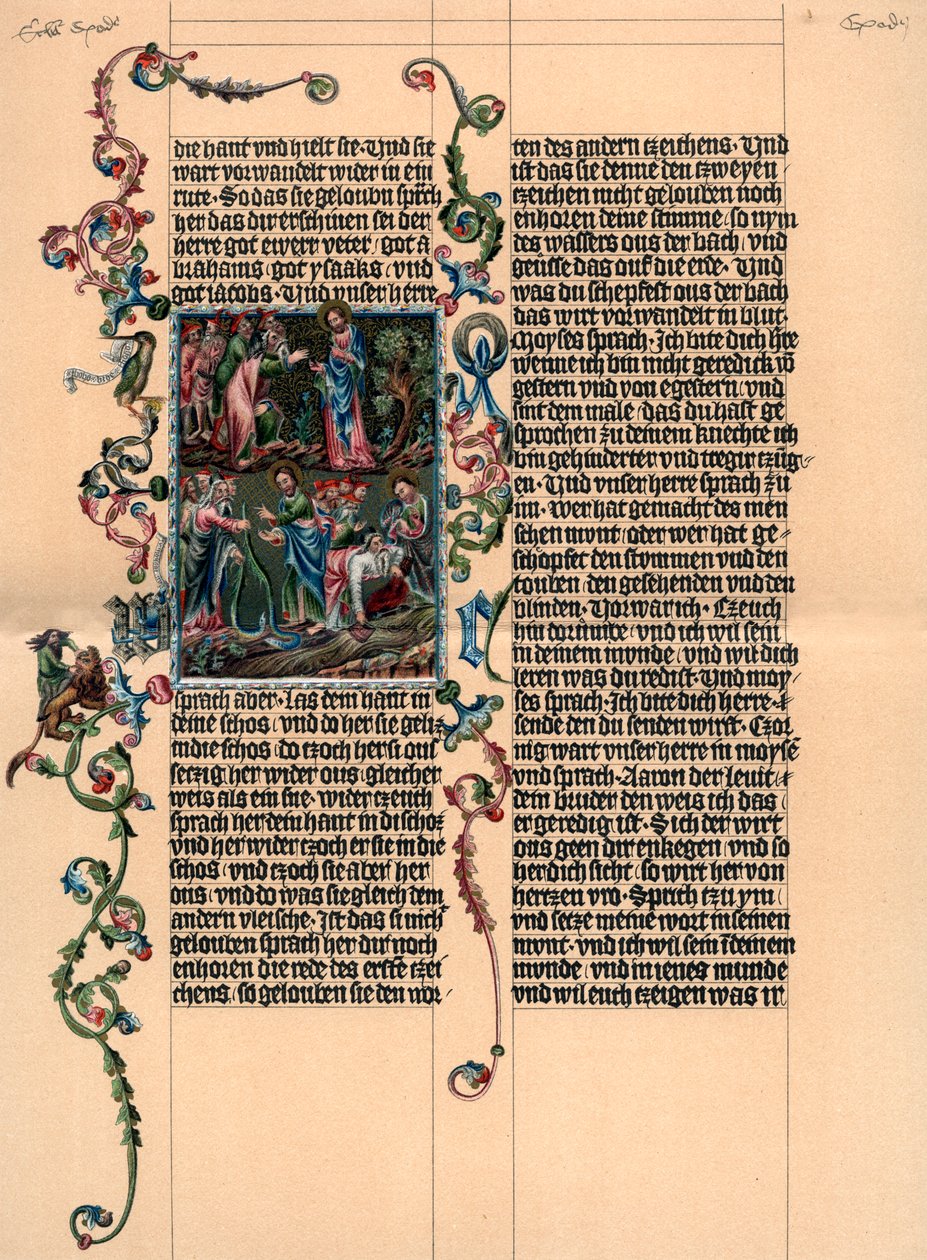 die hant vnd hielt sie · Vnd sie
wart vorwandelt wider in ein
rute · So das sie geloubn sprch
her das dir erschinen sei der
herre got ewerr veter / got a
brahams / got ysaaks / vnd
got iacobs · Vnd vnser herre
sprach aber · Las dein hant in
deine schos / vnd do her sie geliz
in die schos / do tzoch her si ous
setzig her wider ous / gleicher
weis als ein sne · wider tzeuch
sprach her dein hant in di schoz
vnd her wider tzoch er sie in die
schos / vnd tzoch sie aber her
ous / vnd do was sie gleich dem
andern vleische · Ist das si nicht
gelouben sprach her dir noch
enhoren die rede des erste tzei
chens / so gelouben sie den wor /
ten des andern tzeichens · Vnd
ist das sie denne den tzweyen
tzeichen nicht gelouben noch
enhoren deine stimme / so nym
des wassers ous der bach / vnd
geusse das ouf die erde · Vnd
was du schepfest ous der bach
das wirt vorwandelt in blut ·
Moyses sprach · Ich bite dich h're
wenne ich bin nicht geredick vo
gestern vnd von egestern / vnd
sint dem male / das du hast ge
sprochen zu deinem knechte ich
bin gehinderter vnd tregir tzung
en · Vnd vnser herre sprach zu
im · Wer hat gemacht des men
schen munt / oder wer hat ge
schopfet den stummen vnd den
touben / den gesehenden vnd den
blinden · Vorwar ich · Czeuch
hin dorumbe / vnd ich wil sein
in deinem munde / vnd wil dich
leren was du redist · Vnd moy
ses sprach · Ich bite dich herre ·
sende den du senden wirst · Czor
nig wart vnser herre in moyse
vnd sprach · Aaron der leuit /
dein bruder den weis ich das /
er geredig ist · Sich der wirt
ous geen dir enkegen / vnd so
her dich sicht / so wirt her von
hertzen vro · Sprich tzu ym /
vnd setze meine wort in seinen
munt · vnd ich wil sein i deinem
munde / vnd in ienes munde
vnd wil euch tzeigen was ir